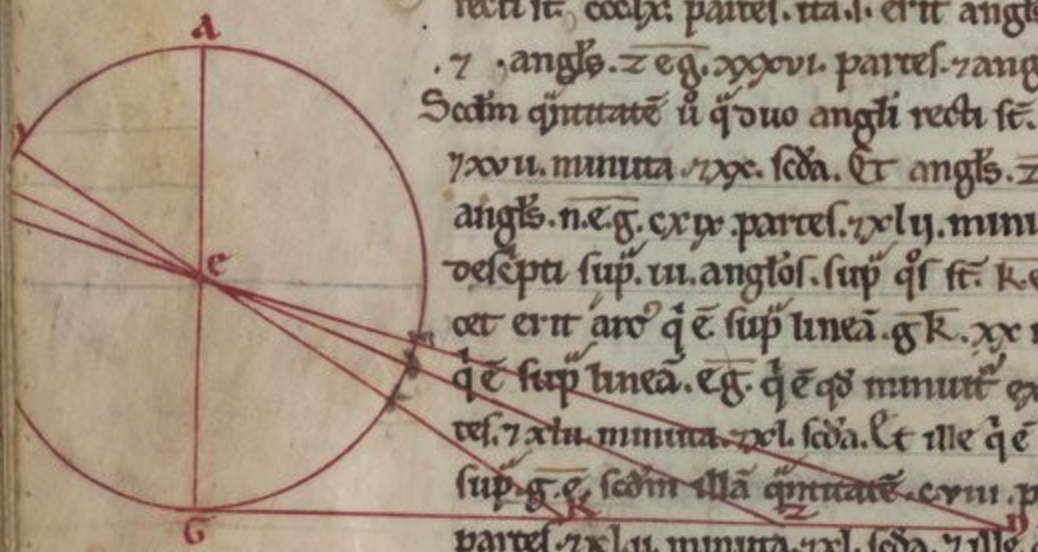 A
recti st̄. ccclx. partes. ita. s. erit angl̄s
⁊ angl̄s. z e g. xxxvi. partes. ⁊ ang
Scd̄m q̄ntitatē ů q̊ duo angl̄i recti st̄.
⁊ xvii. minuta ⁊ xx. scd̄a. Et angl̄s. z
angl̄s. n. e. g. cxix. partes. ⁊ xlij. minu
descⁱpti sup̄. iii. angl̄os. sup̄ q̊s st̄. k. e
e
cet erit arc⁹ q̇ ē sup̄ lineā. g k. xx
q̇ ē sup̄ lineā. e g. q̇ ē qđ minuit ex
tes. ⁊ xlii. minuta. ⁊ xl. scd̄a. Et ille q̇ ē
sup̄. g. e. scd̄m illā q̄ntitatē. cviii. p
G k z n
partes. ⁊ xlii. minuta. ⁊ xl. scd̄a. ⁊ ille